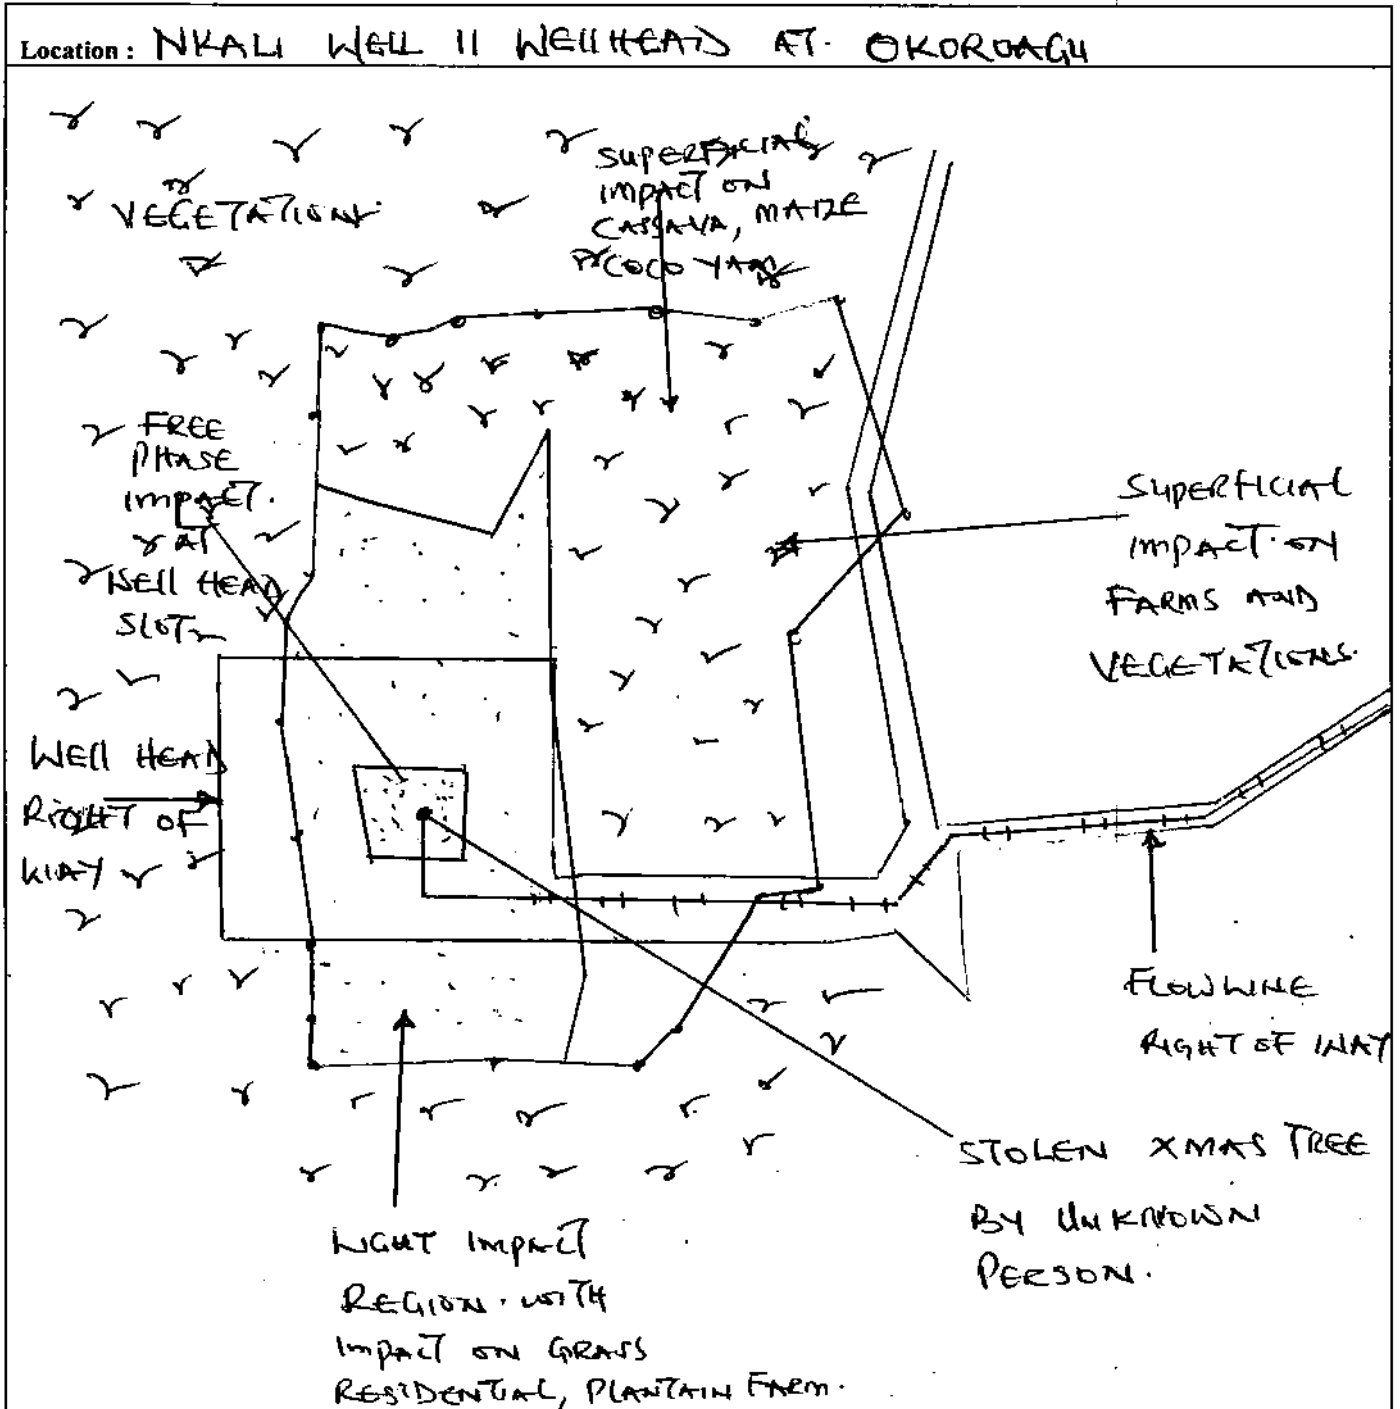 Location : NKALI WELL 11 WELLHEAD AT. OKOROAGU
SUPERFICIAL
IMPACT ON
CASSAVA, MAIZE
COCO YAM
VEGETATION
FREE
PHASE
IMPACT.
AT
WELL HEAD
SLOT
SUPERFICIAL
IMPACT ON
FARMS AND
VEGETATIONS.
WELL HEAD
RIGHT OF
WAY
FLOWLINE
RIGHT OF WAY
STOLEN XMAS TREE
BY UNKNOWN
PERSON.
LIGHT IMPACT
REGION. WITH
IMPACT ON GRASS
RESIDENTIAL, PLANTAIN FARM.